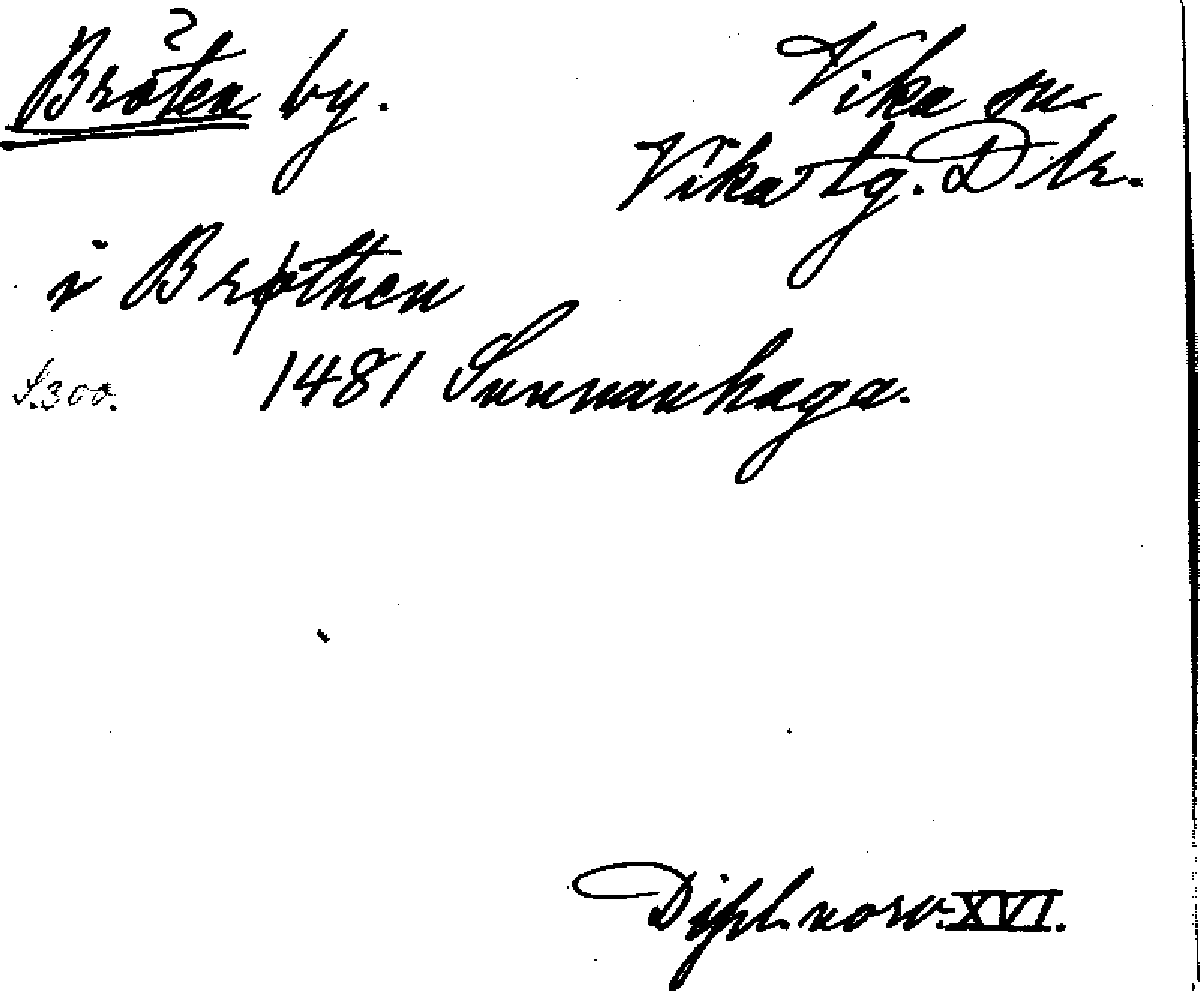 ?
Bråten by.
Vika sn.
Vika tg. Dlr.
i Brøthen
S.300. 1481 Sunnanhaga.
Dipl. norv. XVI.